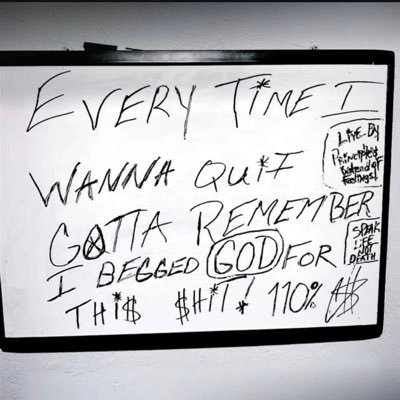 EVERY TIME I
WANNA QUIT
GOTTA REMEMBER
I BEGGED GOD FOR
THI$ $HIT! 110%
LIVE BY
PRINCIPLES
instead of
feelings!
SPEAK
LIFE
NOT
DEATH